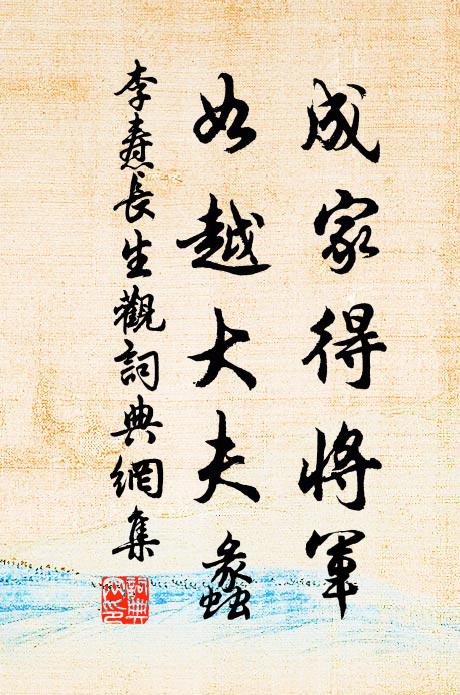 成家得將軍
如越大夫蠡
李燾長生觀詞典網集